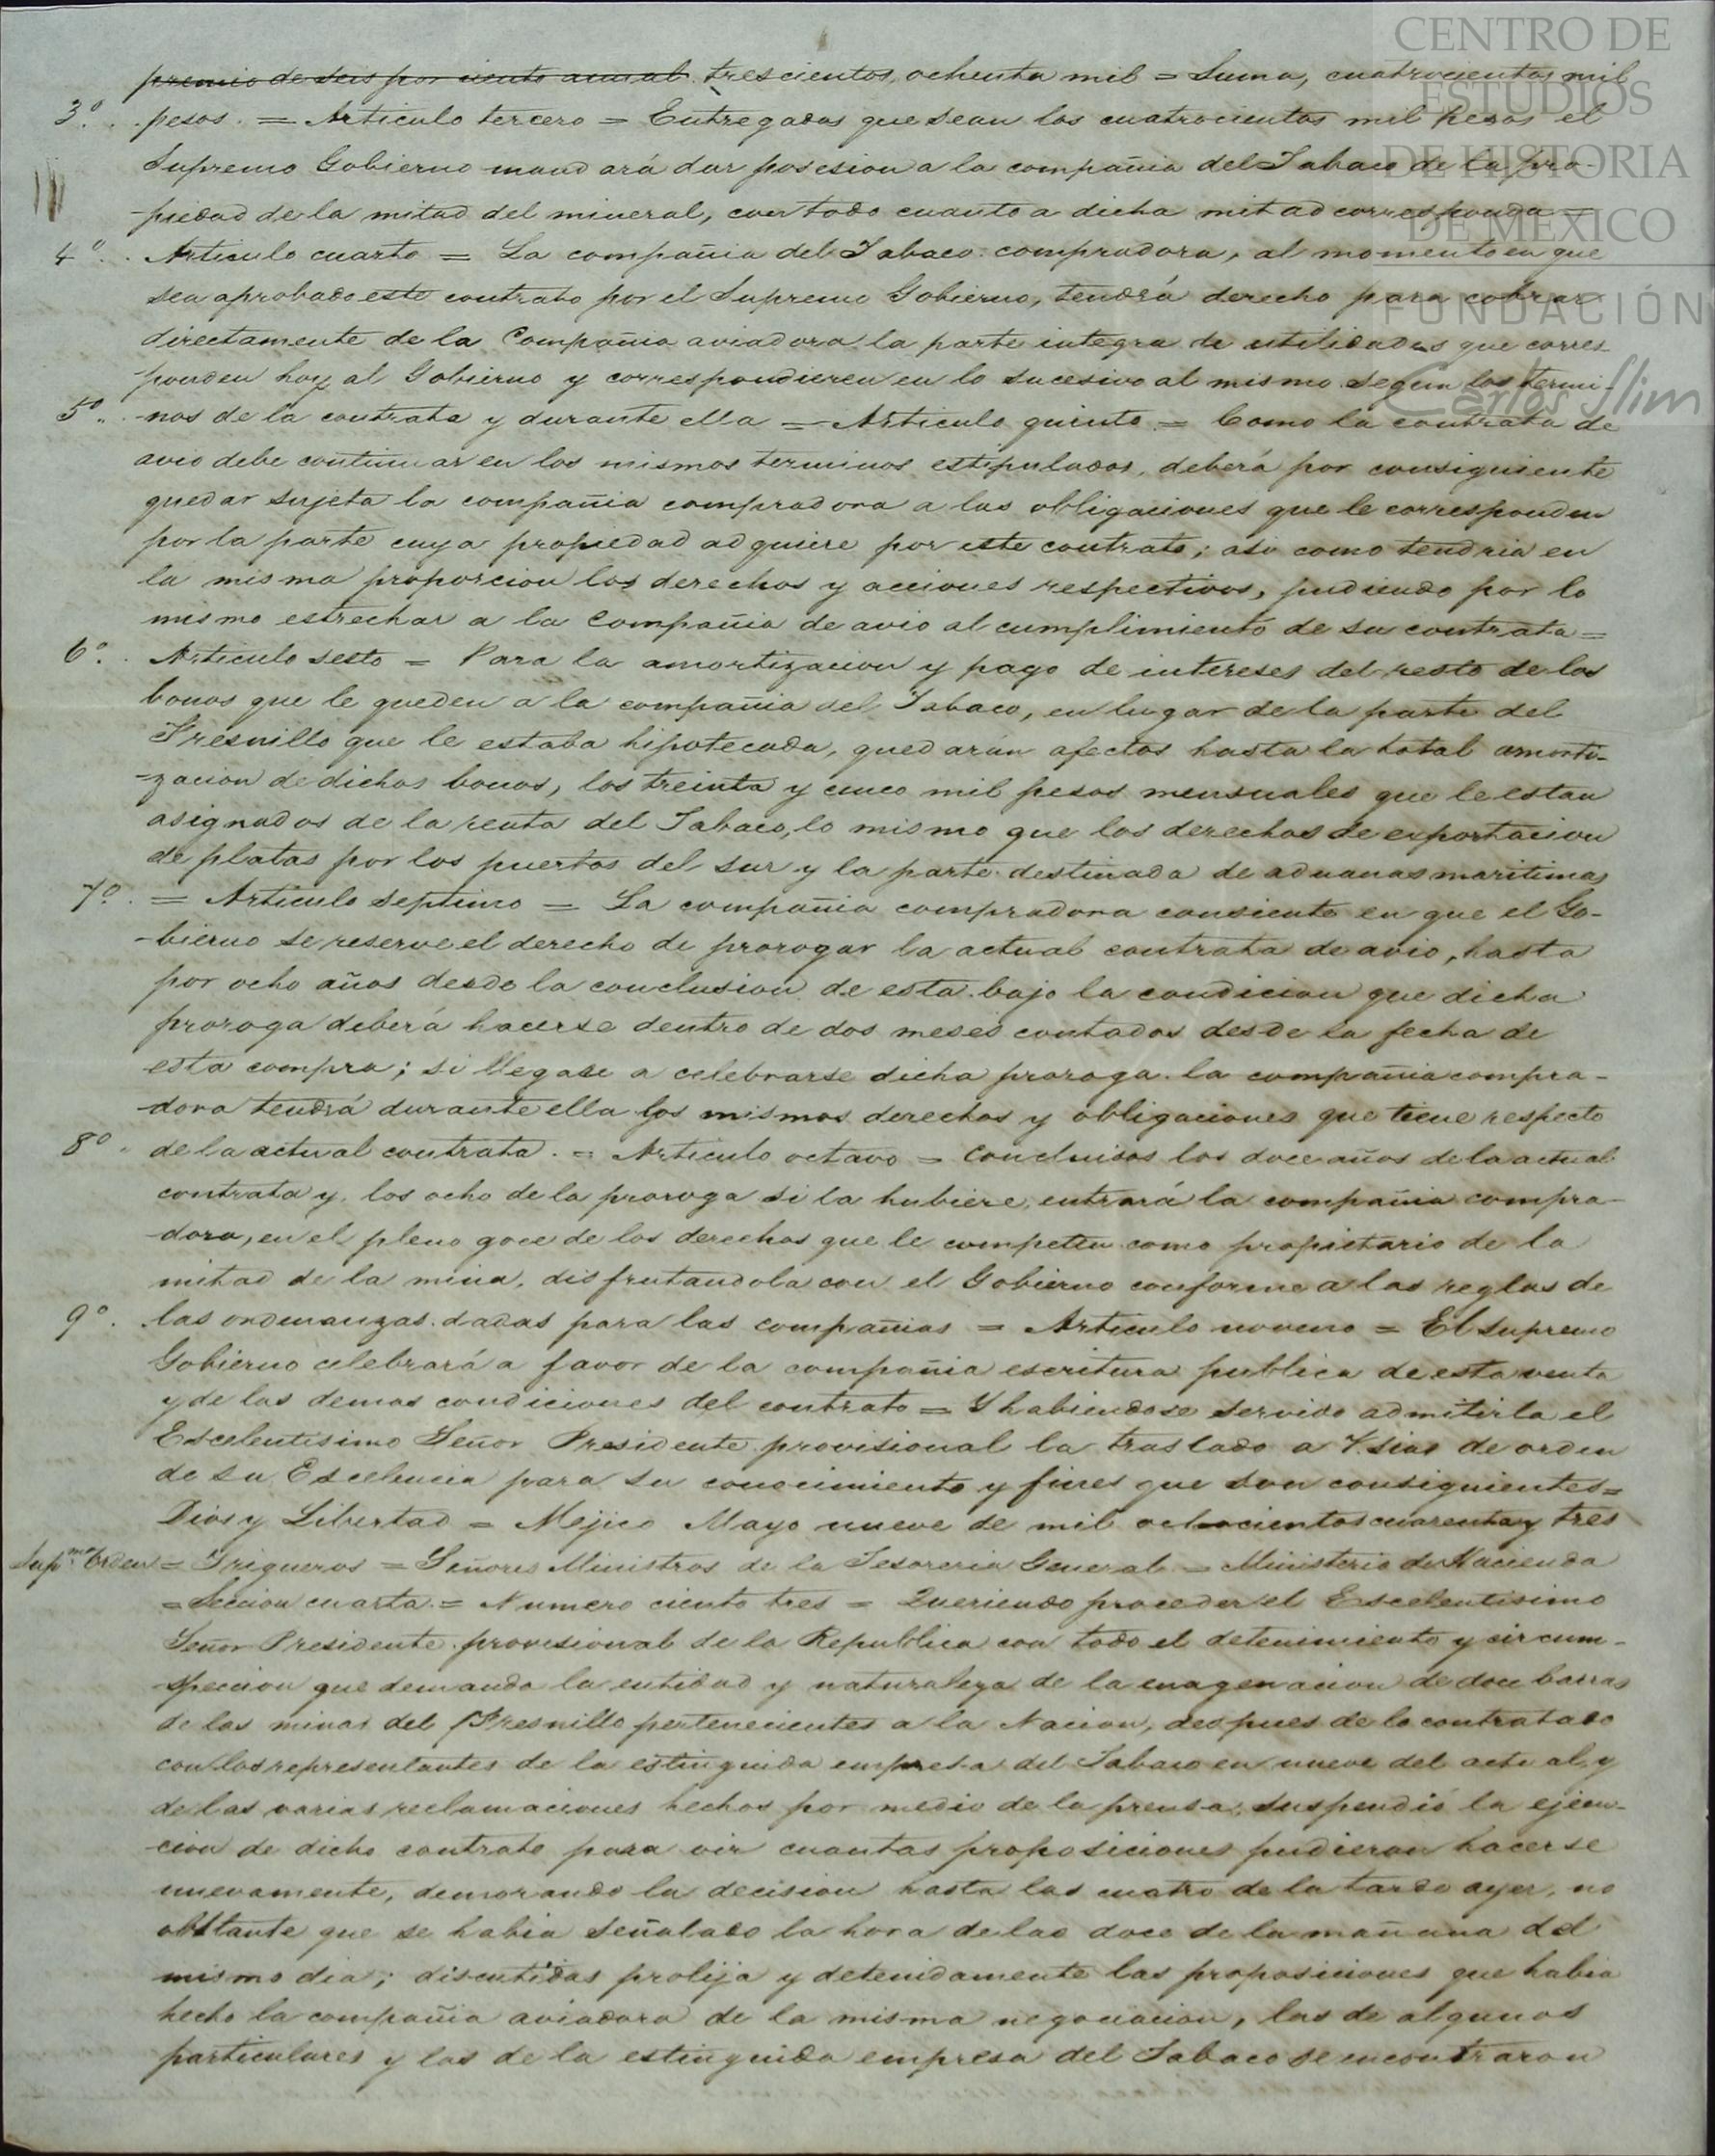 CENTRO DE
ESTUDIOS
DE HISTORIA
DE MÉXICO
FUNDACIÓN
Carlos Slim
premio de seis por ciento anual. trescientos, ochenta mil = Suma, cuatrocientos mil
3º. . pesos. = Articulo tercero = Entregados que sean los cuatrocientos mil pesos el
Supremo Gobierno mandará dar posesion a la compañia del Tabaco de la pro-
-piedad de la mitad del mineral, con todo cuanto a dicha mitad corresponda =
4º. . Articulo cuarto = La compañia del Tabaco compradora, al momento en que
sea aprobado este contrato por el Supremo Gobierno, tendrá derecho para cobrar
directamente de la Compañia aviadora la parte integra de utilidades que corres-
-ponden hoy al Gobierno y correspondieren en lo sucesivo al mismo segun los termi-
5º. . -nos de la contrata y durante ella = Articulo quinto = Como la contrata de
avio debe continuar en los mismos terminos estipulados, deberá por consiguiente
quedar sujeta la compañia compradora a las obligaciones que le corresponden
por la parte cuya propiedad adquiere por este contrato; asi como tendria en
la misma proporcion los derechos y acciones respectivos, pudiendo por lo
mismo estrechar a la Compañia de avio al cumplimiento de su contrata =
6º. . Articulo sesto = Para la amortizacion y pago de intereses del resto de los
bonos que le queden a la compañia del Tabaco, en lugar de la parte del
Fresnillo que le estaba hipotecada, quedarán afectos hasta la total amorti-
-zacion de dichos bonos, los treinta y cinco mil pesos mensuales que le estan
asignados de la renta del Tabaco, lo mismo que los derechos de exportacion
de platas por los puertos del sur y la parte destinada de aduanas maritimas
7º. = Articulo septimo = La compañia compradora consiente en que el Go-
-bierno se reserve el derecho de prorogar la actual contrata de avio, hasta
por ocho años desde la conclusion de esta bajo la condicion que dicha
proroga deberá hacerse dentro de dos meses contados desde la fecha de
esta compra; si llegase a celebrarse dicha proroga la compañia compra-
-dora tendrá durante ella los mismos derechos y obligaciones que tiene respecto
8º. de la actual contrata. = Articulo octavo = Concluisos los doce años de la actual
contrata y los ocho de la proroga si la hubiere, entrará la compañia compra-
-dora, en el pleno goce de los derechos que le competen como propietario de la
mitad de la mina, disfrutandola con el Gobierno conforme a las reglas de
9º. las ordenanzas dadas para las compañias = Articulo noveno = El Supremo
Gobierno celebrará a favor de la compañia escritura publica de esta venta
y de las demas condiciones del contrato = Y habiendose servido admitirla el
Escelentisimo Señor Presidente provisional la traslado a V. sias de orden
de su Escelencia para su conocimiento y fines que son consiguientes =
Dios y Libertad = Mejico Mayo nueve de mil ochocientos cuarenta y tres
Supma. Orden = Trigueros = Señores Ministros de la Tesoreria General = Ministerio de Hacienda
= Seccion cuarta. = Numero ciento tres = Queriendo proceder el Escelentisimo
Señor Presidente provisional de la Republica con todo el detenimiento y circun-
-speccion que demanda la entidad y naturaleza de la enagenacion de doce barras
de las minas del Fresnillo pertenecientes a la Nacion, despues de lo contratado
con los representantes de la estinguida empresa del Tabaco en nueve del actual, y
de las varias reclamaciones hechas por medio de la prensa, suspendió la ejecu-
-cion de dicho contrato para oir cuantas proposiciones pudieran hacerse
nuevamente, demorando la decision hasta las cuatro de la tarde ayer, no
obstante que se habia señalado la hora de las doce de la mañana del
mismo dia; discutidas prolija y detenidamente las proposiciones que habia
hecho la compañia aviadora de la misma negociacion, las de algunos
particulares y las de la estinguida empresa del Tabaco se encontraron